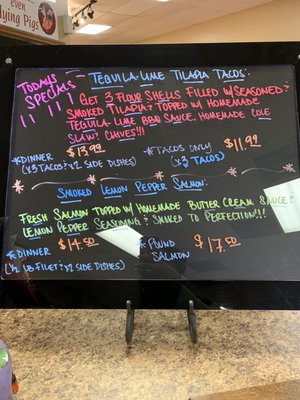 even
Flying Pigs
TODAYS SPECIALS !! !!!
- TEQUILA-LIME TILAPIA TACOS.
GET 3 FLOUR SHELLS FILLED W/SEASONED?
SMOKED TILAPIA? TOPPED W/ HOMEMADE
TEQUILA-LIME BBQ SAUCE, HOMEMADE COLE
SLAW? CHIVES!!!
*DINNER $13.99
(x3 TACOS? x2 SIDE DISHES)
*TACOS ONLY $11.99
(x3 TACOS)
SMOKED LEMON PEPPER SALMON.
FRESH SALMON TOPPED W/HOMEMADE BUTTER CREAM SAUCE?
LEMON PEPPER SEASONING? SMOKED TO PERFECTION!!!
*DINNER $14.50
(½ LB. FILET? x2 SIDE DISHES)
*POUND SALMON $17.50